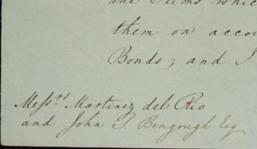 the Sums which
them on accou
Bonds; and I
Mess.rs Martinez del Rio
and John S. Bengough Esq